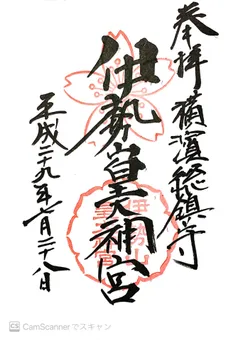 奉拝 横濱総鎮守
伊勢山皇大神宮
平成二十九年七月二十八日
伊勢山
CS CamScannerでスキャン